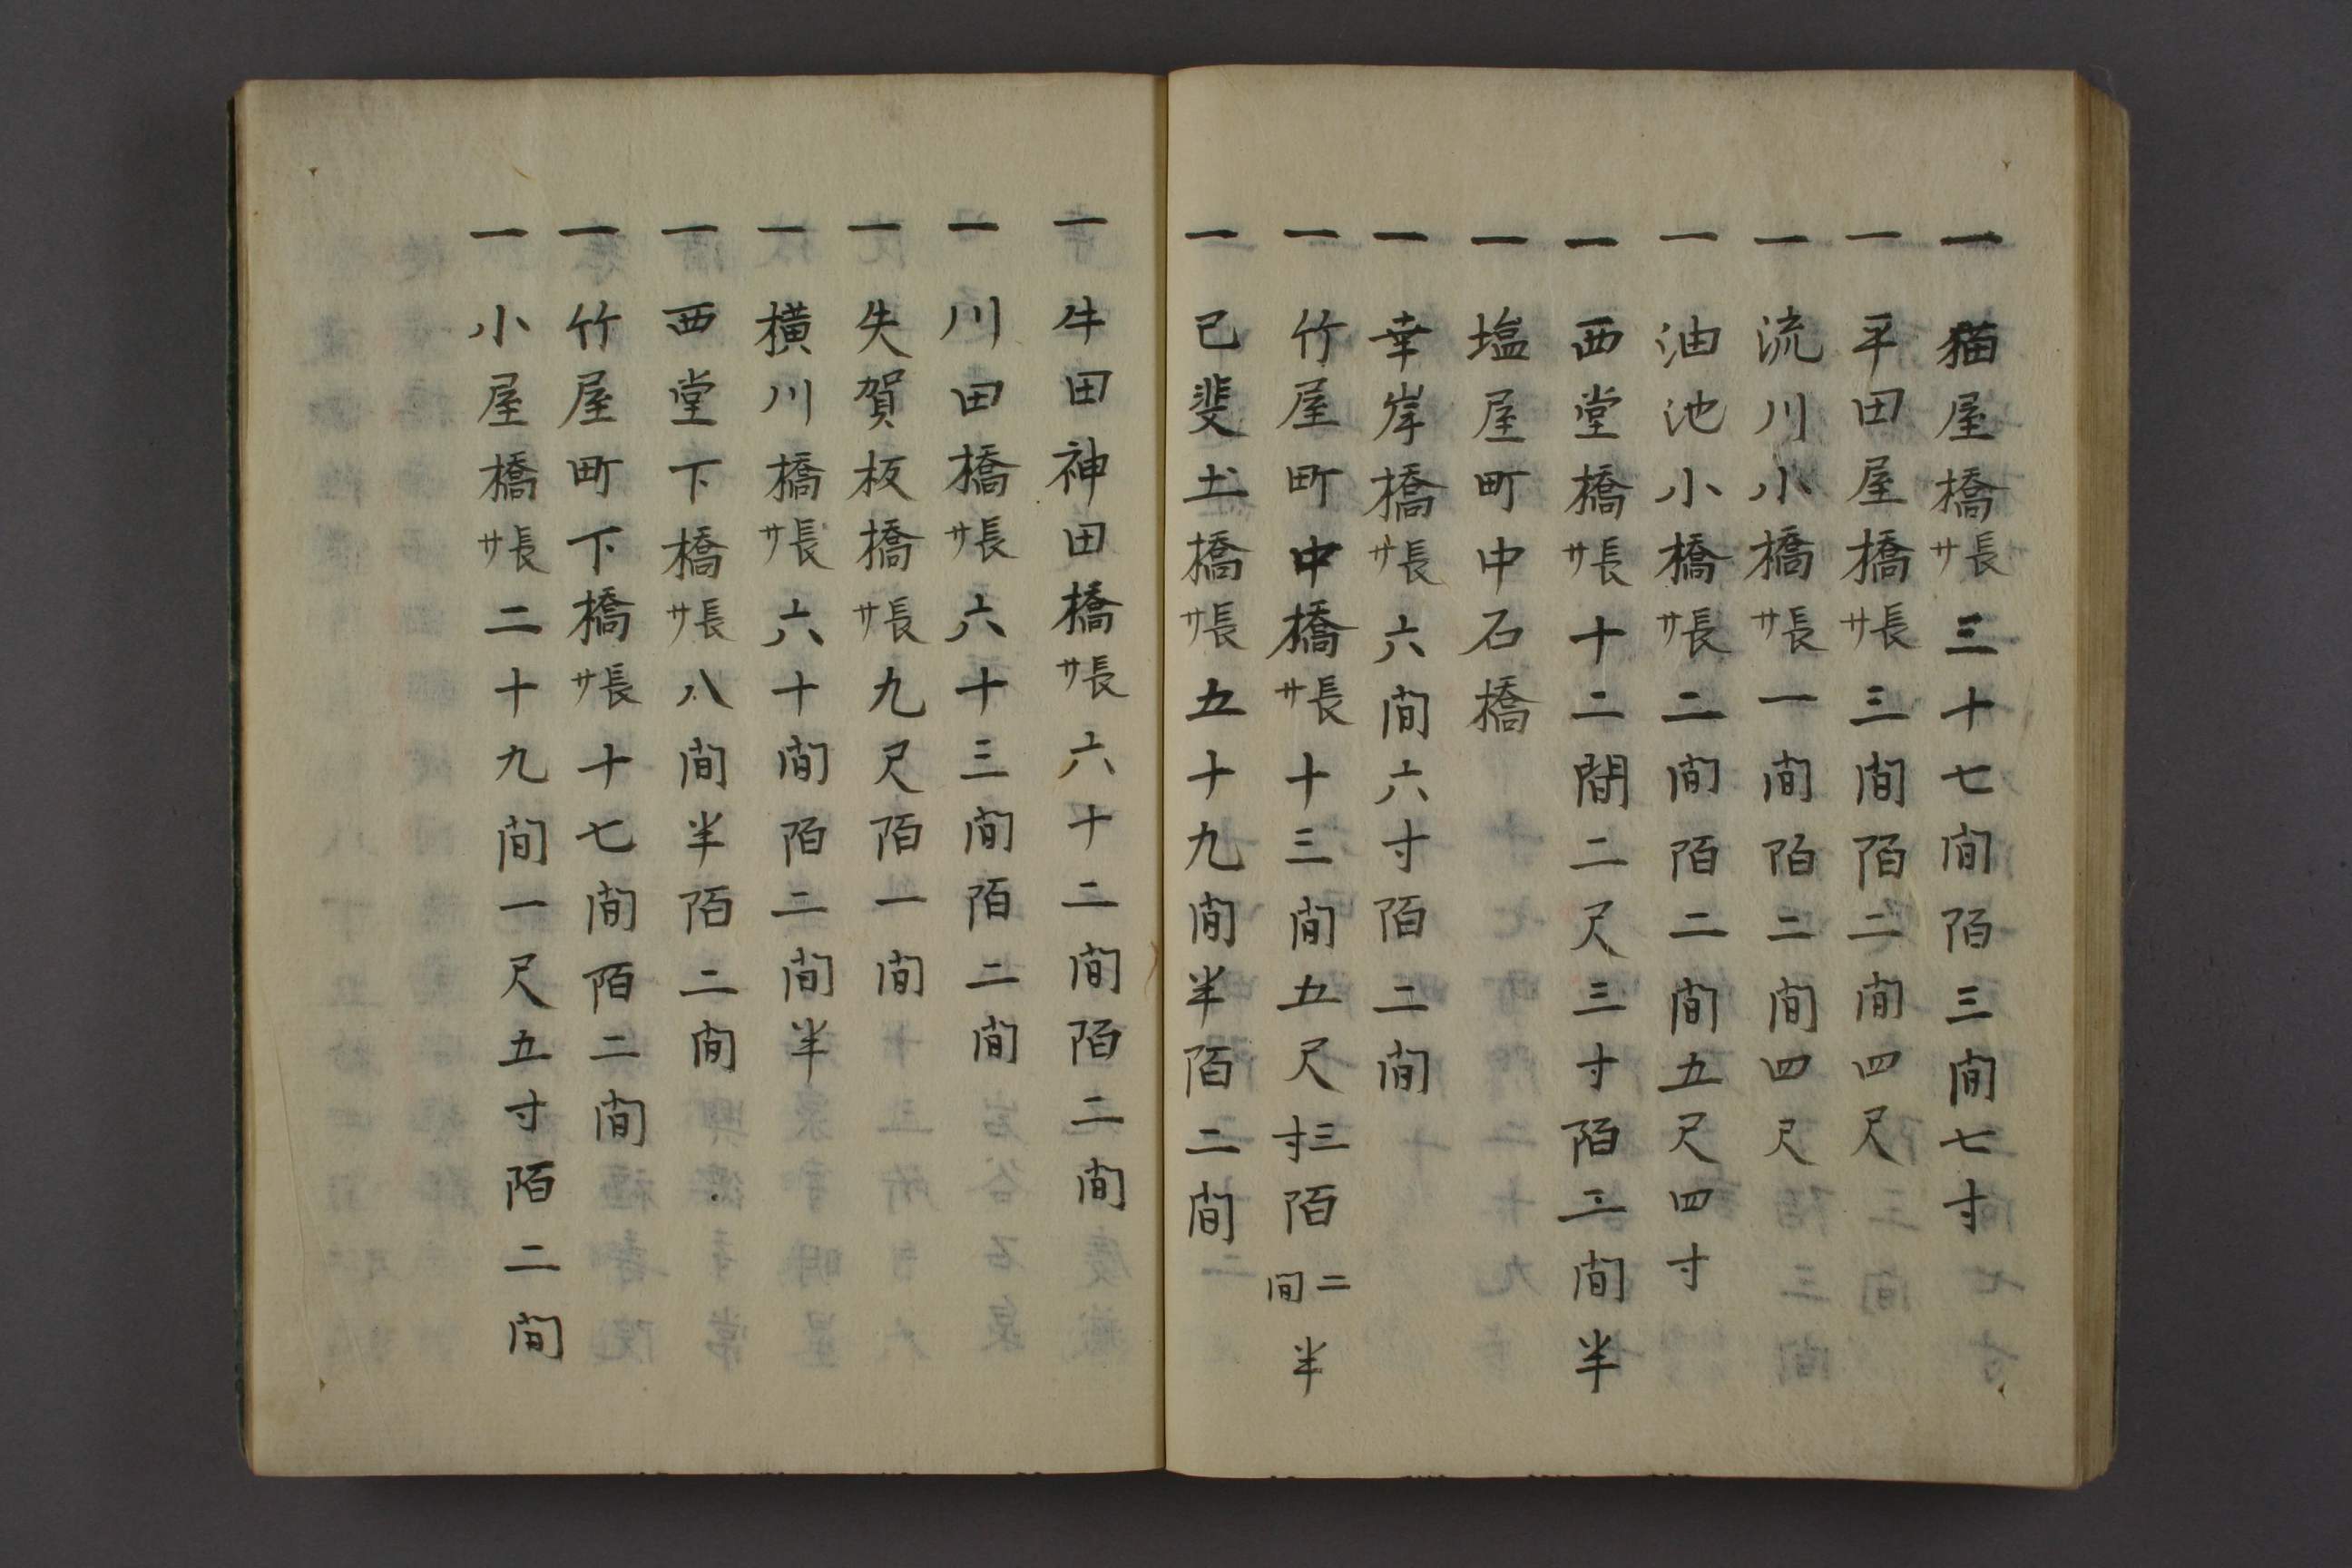 一 猫屋橋長サ三十七間陌三間七寸
一 平田屋橋長サ三間陌二間四尺
一 流川小橋長サ一間陌二間四尺
一 油池小橋長サ二間陌二間五尺四寸
一 西堂橋長サ十二間二尺三寸陌三間半
一 塩屋町中石橋
一 幸岸橋長サ六間六寸陌二間
一 竹屋町中橋長サ十三間五尺三寸陌二間半
一 己斐土橋長サ五十九間半陌二間
一 牛田神田橋長サ六十二間陌二間
一 川田橋長サ六十三間陌二間
一 失賀板橋長サ九尺陌一間
一 横川橋長サ六十間陌二間半
一 西堂下橋長サ八間半陌二間
一 竹屋町下橋長サ十七間陌二間
一 小屋橋長サ二十九間一尺五寸陌二間